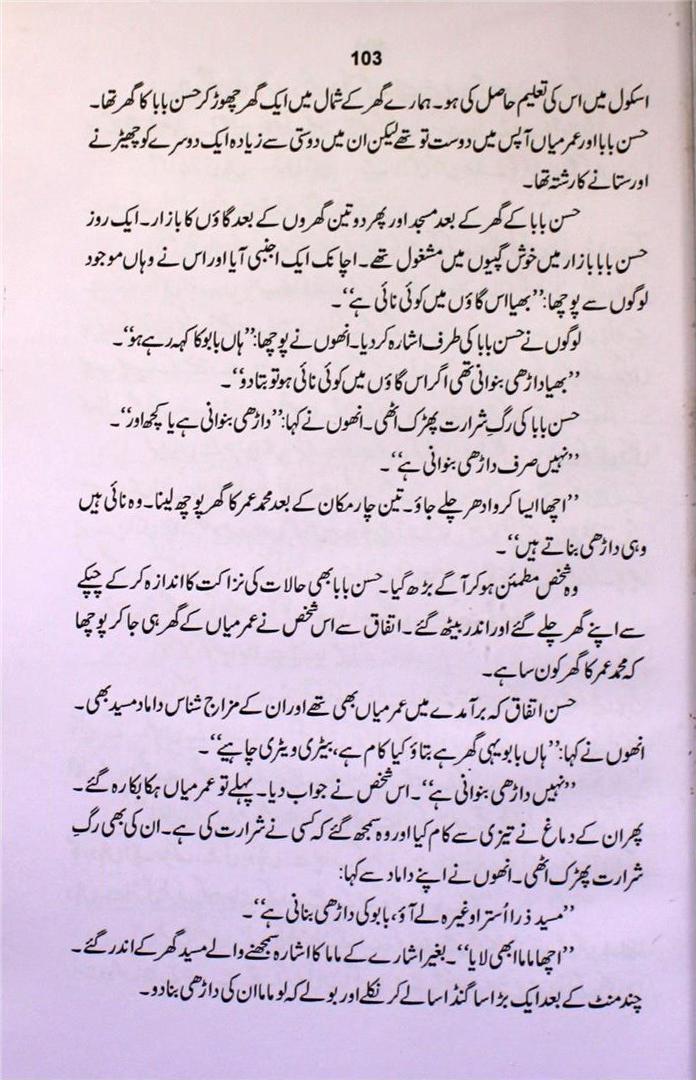 103
اسکول میں اس کی تعلیم حاصل کی ہو۔ ہمارے گھر کے شمال میں ایک گھر چھوڑ کر حسن بابا کا گھر تھا۔
حسن بابا اور عمر میاں آپس میں دوست تو تھے لیکن ان میں دوستی سے زیادہ ایک دوسرے کو چھیڑنے
اور ستانے کا رشتہ تھا۔
حسن بابا کے گھر کے بعد مسجد اور پھر دو تین گھروں کے بعد گاؤں کا بازار۔ ایک روز
حسن بابا بازار میں خوش گپیوں میں مشغول تھے۔ اچانک ایک اجنبی آیا اور اس نے وہاں موجود
لوگوں سے پوچھا: ”بھیا اس گاؤں میں کوئی نائی ہے“۔
لوگوں نے حسن بابا کی طرف اشارہ کر دیا۔ انھوں نے پوچھا: ”ہاں بابو کا کہہ رہے ہو“۔
”بھیا داڑھی بنوانی تھی اگر اس گاؤں میں کوئی نائی ہو تو بتا دو“۔
حسن بابا کی رگِ شرارت پھڑک اٹھی۔ انھوں نے کہا: ”داڑھی بنوانی ہے یا کچھ اور“۔
”نہیں صرف داڑھی بنوانی ہے“۔
”اچھا ایسا کرو ادھر چلے جاؤ۔ تین چار مکان کے بعد محمد عمر کا گھر پوچھ لینا۔ وہ نائی ہیں
وہی داڑھی بناتے ہیں“۔
وہ شخص مطمئن ہو کر آگے بڑھ گیا۔ حسن بابا بھی حالات کی نزاکت کا اندازہ کر کے چپکے
سے اپنے گھر چلے گئے اور اندر بیٹھ گئے۔ اتفاق سے اس شخص نے عمر میاں کے گھر ہی جا کر پوچھا
کہ محمد عمر کا گھر کون سا ہے۔
حسن اتفاق کہ برآمدے میں عمر میاں بھی تھے اور ان کے مزاج شناس داماد مسید بھی۔
انھوں نے کہا: ”ہاں بابو یہی گھر ہے بتاؤ کیا کام ہے، بیٹری ویٹری چاہیے“۔
”نہیں داڑھی بنوانی ہے“۔ اس شخص نے جواب دیا۔ پہلے تو عمر میاں ہکا بکا رہ گئے۔
پھر ان کے دماغ نے تیزی سے کام کیا اور وہ سمجھ گئے کہ کسی نے شرارت کی ہے۔ ان کی بھی رگِ
شرارت پھڑک اٹھی۔ انھوں نے اپنے داماد سے کہا:
”مسید ذرا اُسترا وغیرہ لے آؤ، بابو کی داڑھی بنانی ہے“۔
”اچھا ماما ابھی لایا“۔ بغیر اشارے کے ماما کا اشارہ سمجھنے والے مسید گھر کے اندر گئے۔
چند منٹ کے بعد ایک بڑا سا گنڈاسا لے کر نکلے اور بولے کہ لو ماما ان کی داڑھی بنا دو۔